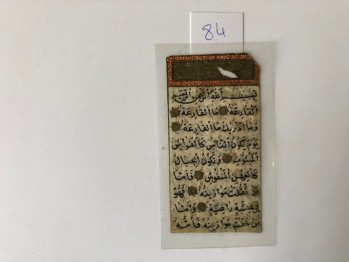 84
بسم الله الرحمن الرحيم
القارعة ما القارعة
وما ادريك ما القارعة
يوم يكون الناس كالفراش
المبثوث وتكون الجبال
كالعهن المنفوش فاما
من ثقلت موازينه فهو
في عيشة راضية واما
من خفت موازينه فامه